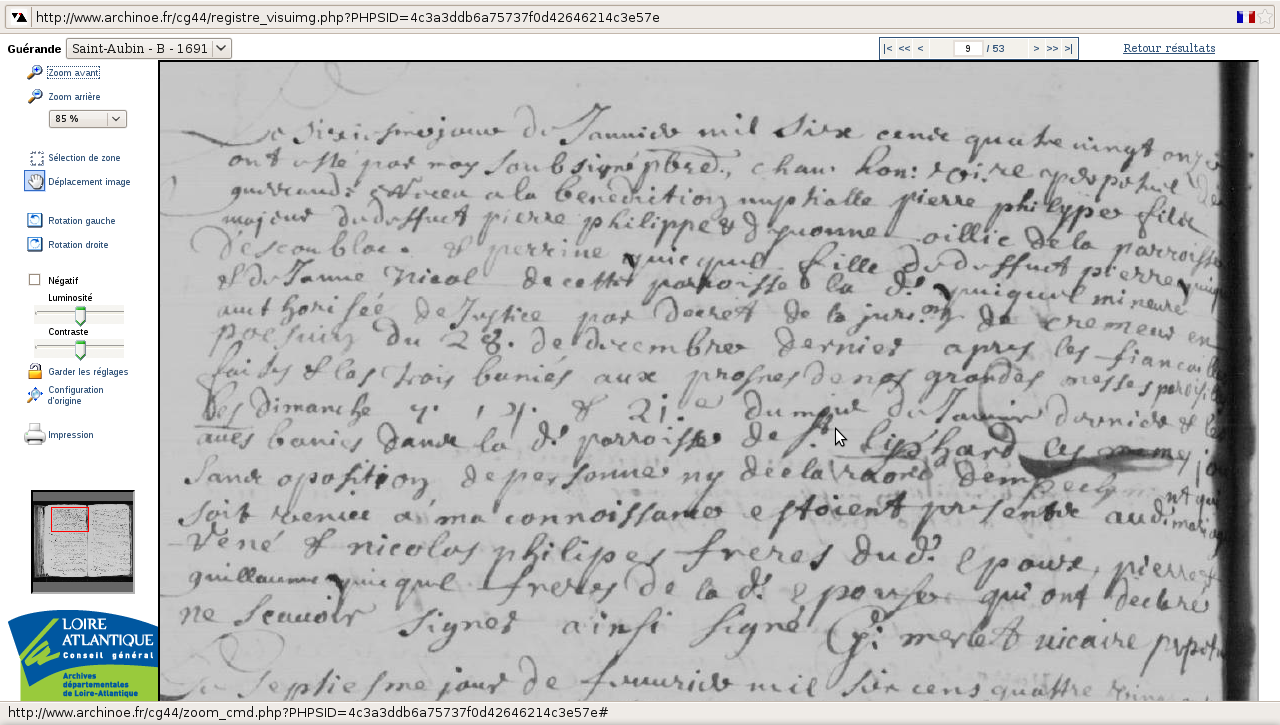 http://www.archinoe.fr/cg44/registre_visuimg.php?PHPSID=4c3a3ddb6a75737f0d42646214c3e57e
Guérande
Saint-Aubin - B - 1691
|< << < 9 / 53 > >> >|
Retour résultats
Zoom avant
Zoom arrière
85 %
Sélection de zone
Déplacement image
Rotation gauche
Rotation droite
Négatif
Luminosité
Contraste
Garder les réglages
Configuration
d'origine
Impression
LOIRE
ATLANTIQUE
Conseil général
Archives
départementales
de Loire-Atlantique
jour de Janvier mil six cents quatre vingt onze
ont esté par moy soubsigné pbre
a la benediction nuptialle pierre philyppes fils
majeur du deffunct pierre philippes & d yvonne oillic de la parroisse
d'escoublac & perrine quicquel fille du deffunct pierre
& de Janne Nicol de cette parroisse la d. quiquel mineure
authorisée de Justice par decret de la
du 28. de decembre dernier apres les fiancailles
faites & les trois banies aux prosnes de nos grandes messes
dimanche & 21. du de Janvier dernier & les
banies dans la d. parroisse de st. liphard les mesmes
sans oposition de personne ny
soit venue a ma connoissance estoient presents
rené & nicolas philipes freres du d. epoux, pierre
guillaume quicquel freres de la d. epouse qui ont declaré
ne scavoir signer ainsi signé merlet vicaire
septiesme jour de fevrier mil six cens quattre
http://www.archinoe.fr/cg44/zoom_cmd.php?PHPSID=4c3a3ddb6a75737f0d42646214c3e57e#